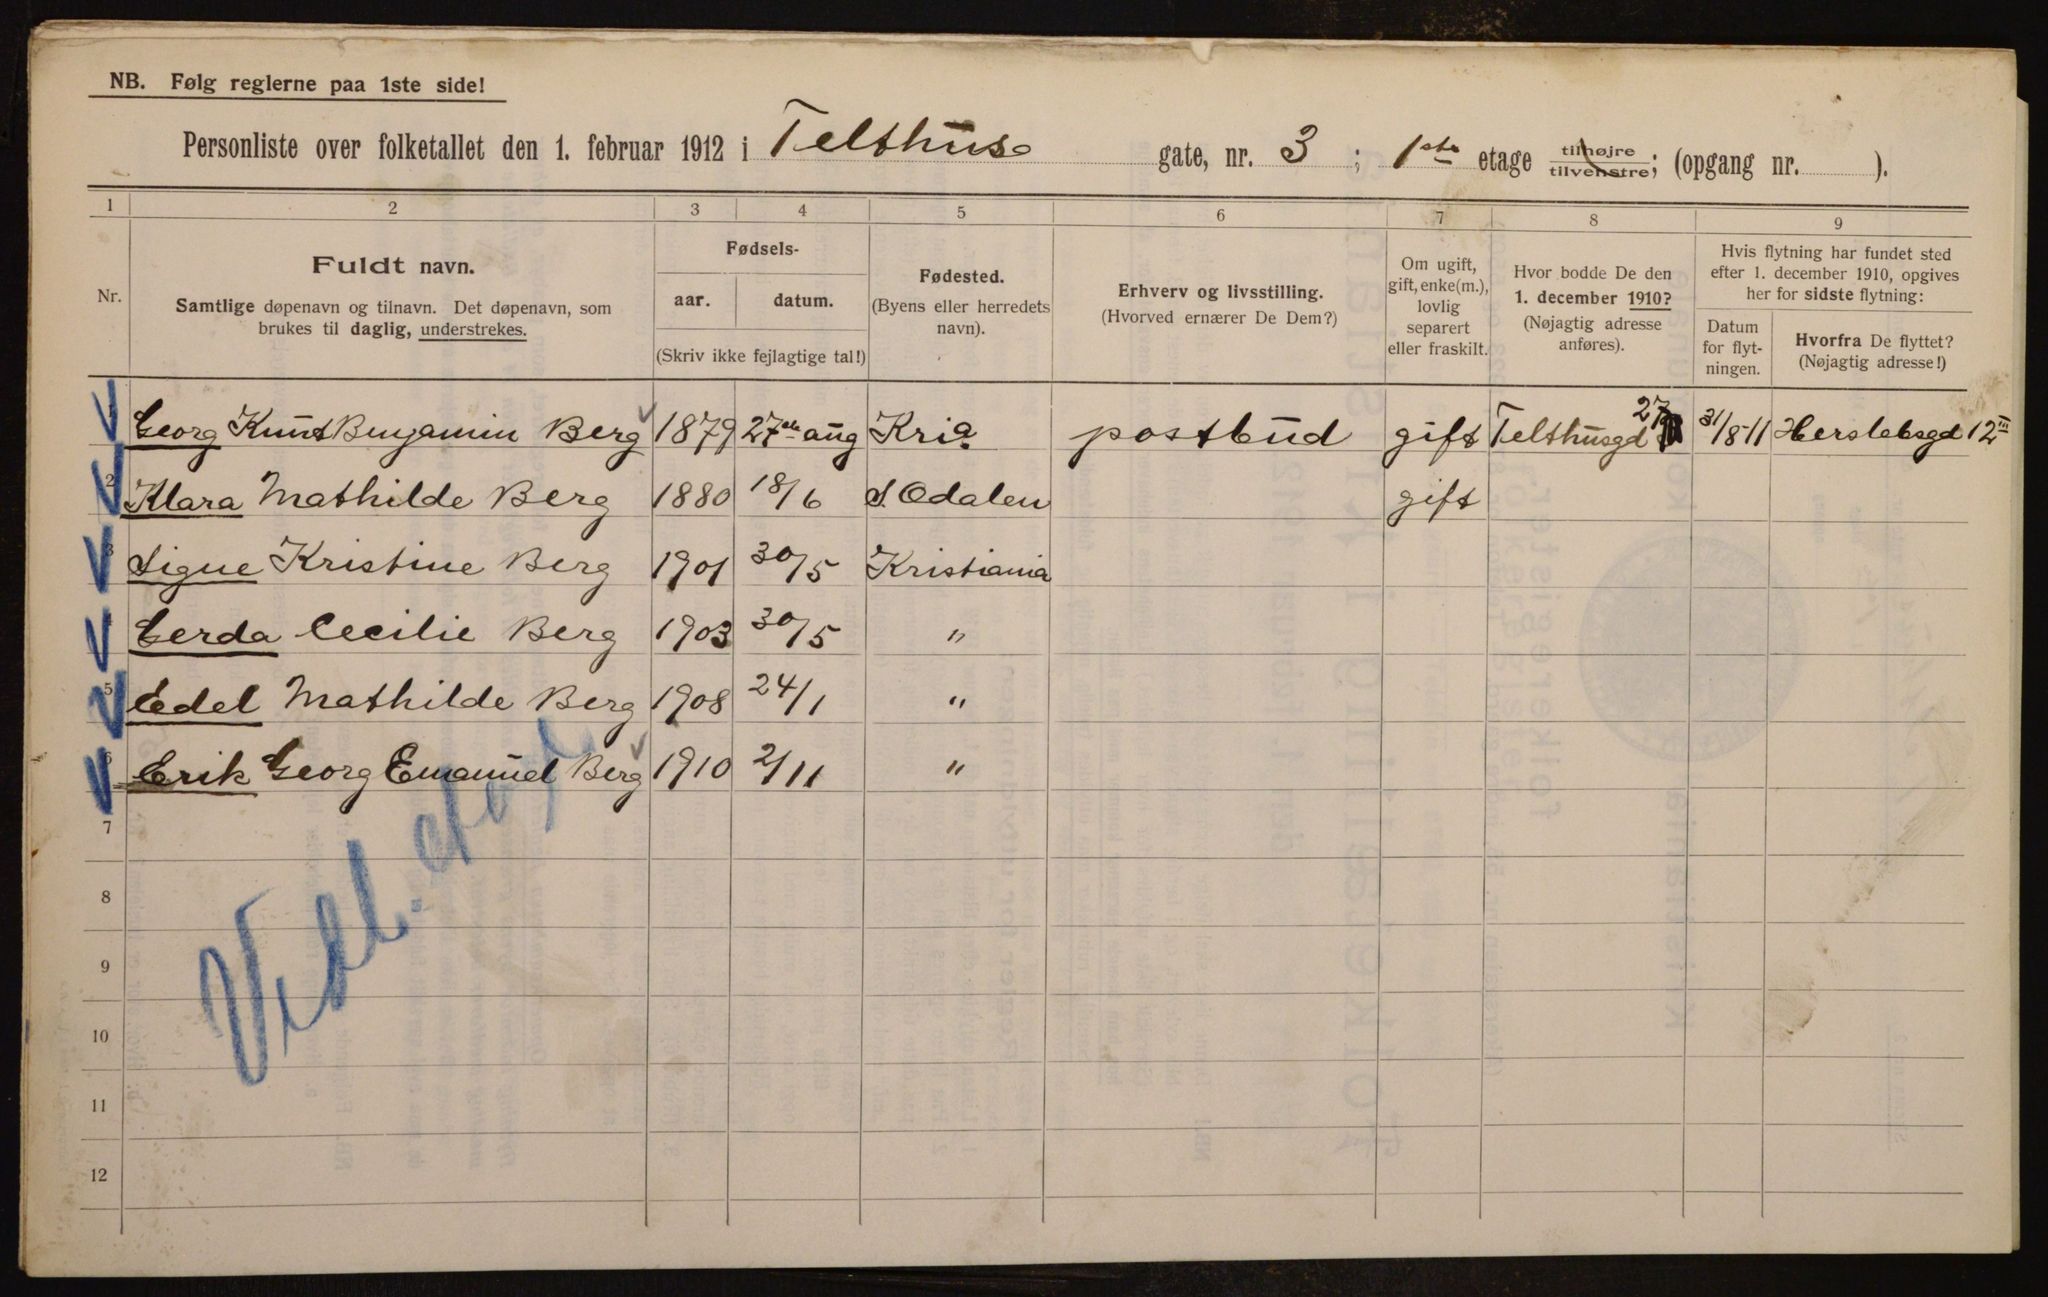 NB. Følg reglerne paa 1ste side!
Personliste over folketallet den 1. februar 1912 i Telthus gate, nr. 3 ; 1ste etage tilhøjre tilvenstre; (opgang nr. ).
1 2 3 4 5 6 7 8 9
Nr.
Fuldt navn.
Samtlige døpenavn og tilnavn. Det døpenavn, som
brukes til daglig, understrekes.
Fødsels-
aar. datum.
(Skriv ikke fejlagtige tal!)
Fødested.
(Byens eller herredets
navn).
Erhverv og livsstilling.
(Hvorved ernærer De Dem?)
Om ugift,
gift, enke(m.),
lovlig
separert
eller fraskilt.
Hvor bodde De den
1. december 1910?
(Nøjagtig adresse
anføres).
Hvis flytning har fundet sted
efter 1. december 1910, opgives
her for sidste flytning:
Datum
for flyt-
ningen.
Hvorfra De flyttet?
(Nøjagtig adresse!)
Georg Knut Benjamin Berg 1879 27de aug Kria postbud gift Telthusgd 27 31/8 11 Herslebsgd 12 III
2 Klara Mathilde Berg 1880 18/6 S. Odalen gift
3 Signe Kristine Berg 1901 30/5 Kristiania
Gerda Cecilie Berg 1903 30/5 "
5 Edel Mathilde Berg 1908 24/1 "
6 Erik Georg Emanuel Berg 1910 2/11 "
7
8
9
10
11
12